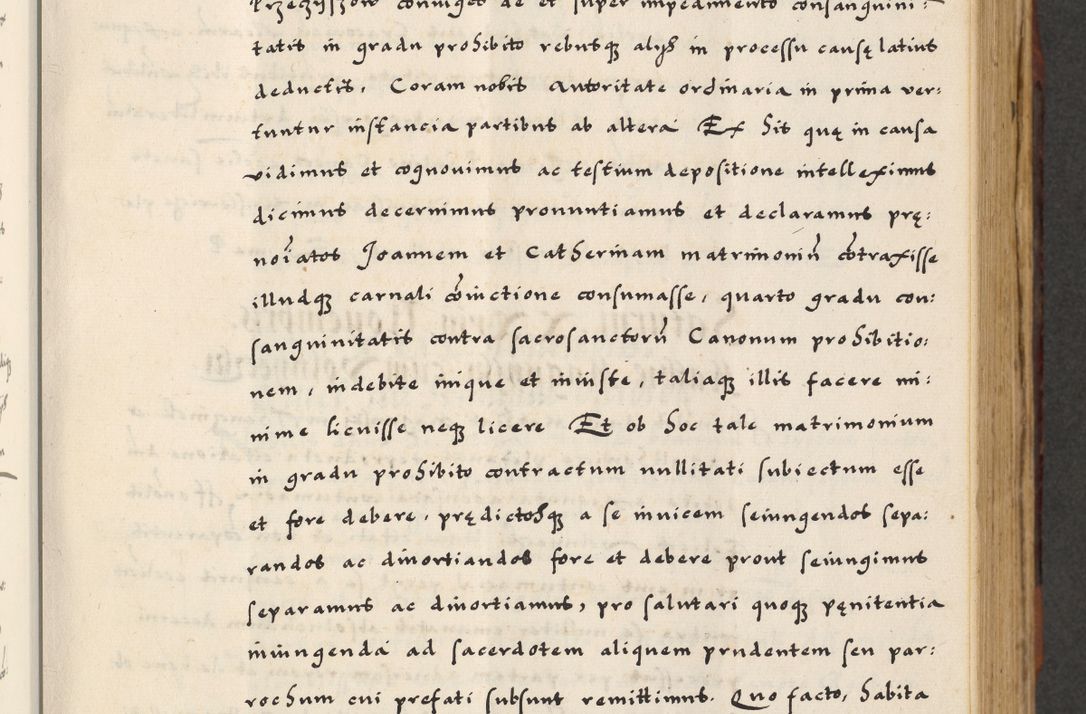 coniuges de et super impedimento consanguini:
tatis in gradu prohibito rebusq alijs in processu causę latius
deductis, Coram nobis Autoritate ordinaria in prima ver:
tuntur instancia partibus ab altera Ex his quę in causa
vidimus et cognouimus ac testium depositione intelleximus
dicimus decernimus pronuntiamus et declaramus prę:
noiatos Joannem et Catherinam matrimoniũ cõtraxisse
illudq carnali cõiunctione consumasse, quarto gradu con:
sanguinitatis contra sacrosanctorũ Canonum prohibitio:
nem, indebite inique et iniuste, taliaq illis facere mi:
nime licuisse neq licere Et ob hoc tale matrimonium
in gradu prohibito contractum nullitati subiectum esse
et fore debere, prędictosq a se inuicem seiungendos sepa:
randos ac diuortiandos fore et debere prout seiungimus
separamus ac diuortiamus, pro salutari quoq pęnitentia
iniungenda ad sacerdotem aliquem prudentem seu par:
rochum cui prefati subsunt remittimus. Quo facto, habita